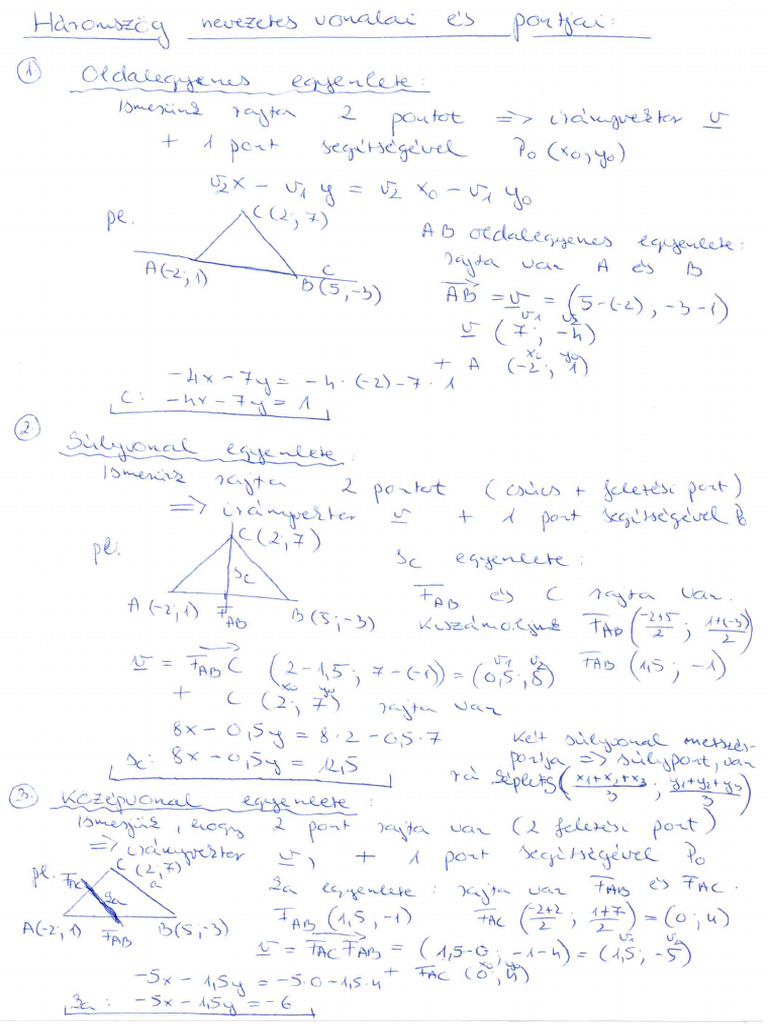 Háromszög nevezetes vonalai és pontjai:
① Oldalegyenes egyenlete:
Ismerünk rajta 2 pontot => irányvektor v
+ 1 pont segítségével P₀ (x₀, y₀)
v₂x - v₁y = v₂x₀ - v₁y₀
pl.
C(2; 7)
A(-2; 1)
c
B(5; -3)
AB oldalegyenes egyenlete:
rajta van A és B
AB = v = (5-(-2), -3-1)
v₁ v₂
v (7; -4)
x₀ y₀
+ A (-2; 1)
-4x - 7y = -4·(-2) - 7·1
c: -4x - 7y = 1
② Súlyvonal egyenlete:
Ismerünk rajta 2 pontot (csúcs + felezési pont)
=> irányvektor v + 1 pont segítségével P₀
pl.
C(2; 7)
sc
A(-2; 1) F_AB B(5; -3)
sc egyenlete:
F_AB és C rajta van.
Kiszámoljuk F_AB (-2+5/2; 1+(-3)/2)
F_AB (1,5; -1)
v₁ v₂
v = F_AB C (2-1,5; 7-(-1)) = (0,5; 8)
x₀ y₀
+ C (2; 7) rajta van
8x - 0,5y = 8·2 - 0,5·7
sc: 8x - 0,5y = 12,5
Két súlyvonal metszés-
pontja => súlypont, van
rá képlet S(x₁+x₂+x₃/3; y₁+y₂+y₃/3)
③. Középvonal egyenlete:
Ismerjük, hogy 2 pont rajta van (2 felezési pont)
=> irányvektor v, + 1 pont segítségével P₀
pl.
F_AC C (2; 7)
a
A(-2; 1) F_AB B(5; -3)
egyenlete: rajta van F_AB és F_AC.
F_AB (1,5; -1) F_AC (-2+2/2; 1+7/2) = (0; 4)
v₁ v₂
v = F_AC F_AB = (1,5-0; -1-4) = (1,5; -5)
x₀ y₀
+ F_AC (0; 4)
-5x - 1,5y = -5·0 - 1,5·4
-5x - 1,5y = -6